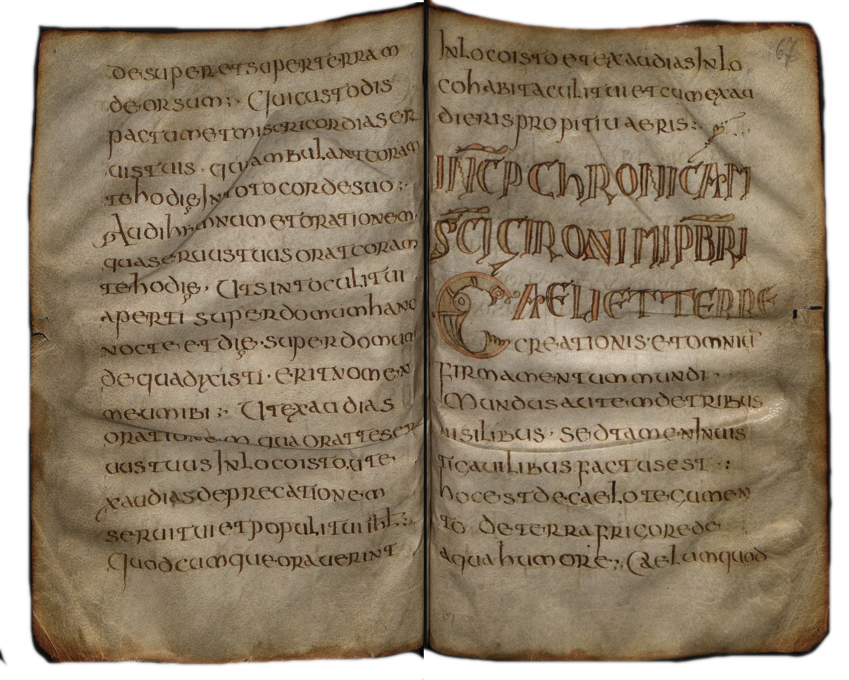 desuperetsuperterram
deorsum;· Quicustodis
pactumetmisericordiaser
uistuis· quiambulantcoram
tehodieIntotocordesuo;·
Audihymnumetorationem·
quaseruustuusoratcoram
tehodie· Utsintoculitui
apertisuperdomumhanc
nocteetdie·superdomum
dequadixisti·eritnomen
meumibi;· Utexaudias
orationemquaoratteser
uustuusInlocoisto,ute
xaudiasdeprecationem
seruituietpopulituiihl;·
Quodcumqueorauerint
67
InlocoistoetexaudiasInlo
cohabitaculituietcumexau
dierispropitiuaeris;·
INCP CHRONICAM
SCI CIRONIMI PBRI
CAELI ET TERRE
CREATIONIS·ETOMNIU
firmamentummundi·
Mundusautemdetribus
uisilibus· sedtamenInuis
ticauilibusfactusest·:
hocestdecaelotecumen
to deterrafricorede
aquahumore;· Caelumquod